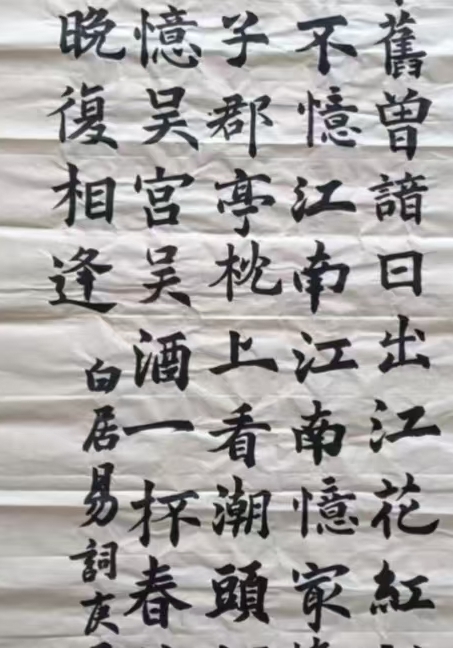 舊曾諳日出江花紅
不憶江南江南憶㝡
子郡亭枕上看潮頭
憶吴宮吴酒一杯春
晚復相逢
白居易詞庚